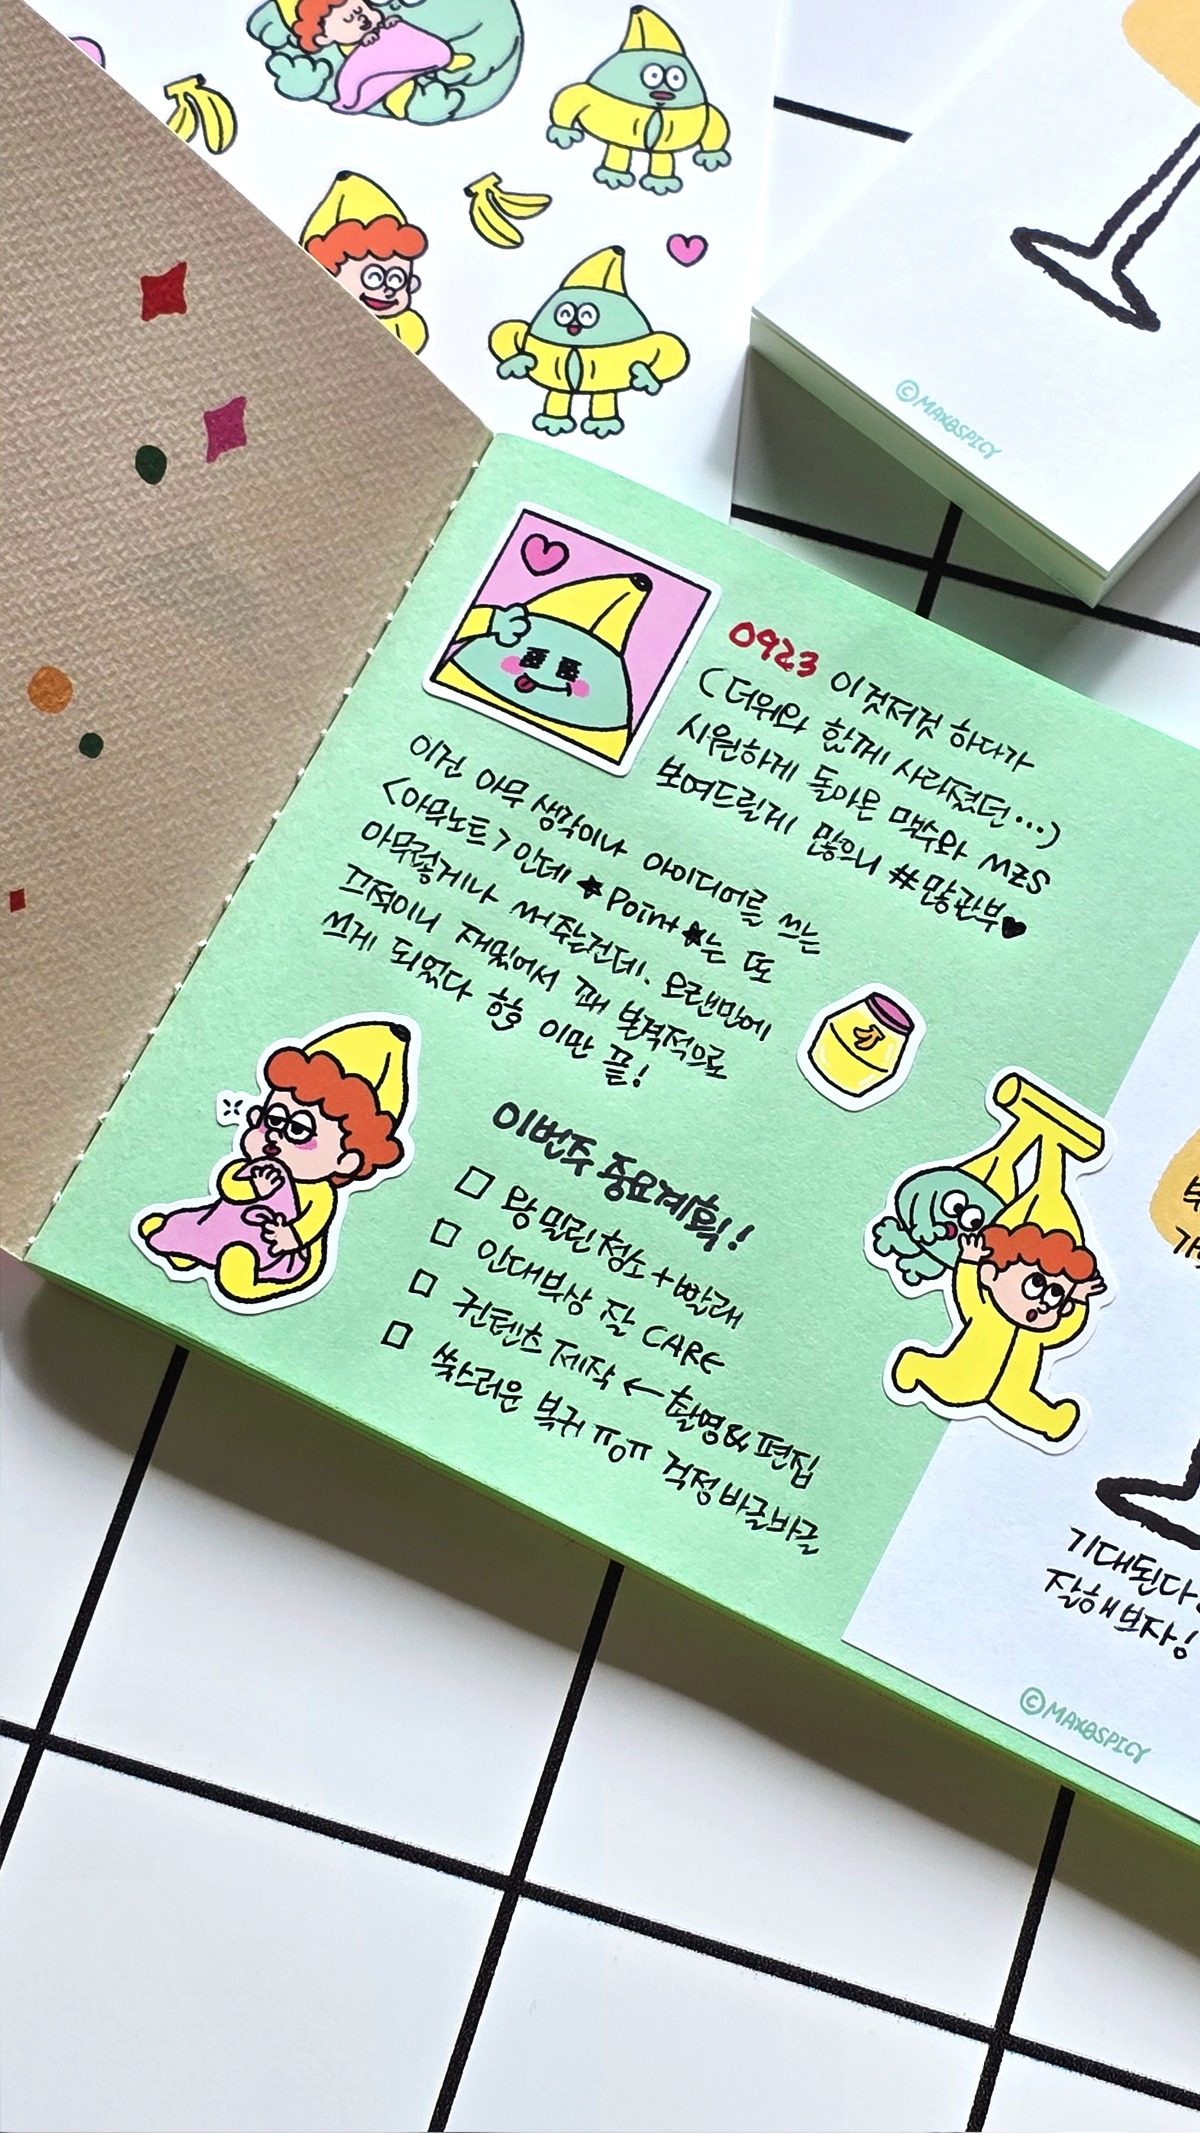 ©MAX&SPICY
0923 이것저것 하다가
(더위와 함께 사라졌던...)
시원하게 돌아온 맥수와 MZS
보여드릴게 많으니 #많관부♥
이건 아무 생각이나 아이디어를 쓰는
<아무노트>인데 ★Point★는 또
아무렇게나 써주는건데. 오랜만에
끄적이니 재밌어서 꽤 본격적으로
쓰게 되었다 헝 이만 끝!
이번주 중요계획!
□ 왕밀린청소+빨래
□ 인대부상 잘 CARE
□ 컨텐츠 제작 ← 촬영&편집
□ 쑥스러운 복귀 ㅠㅇㅠ 걱정바글바글
기대된다
잘해보자!
©MAX&SPICY